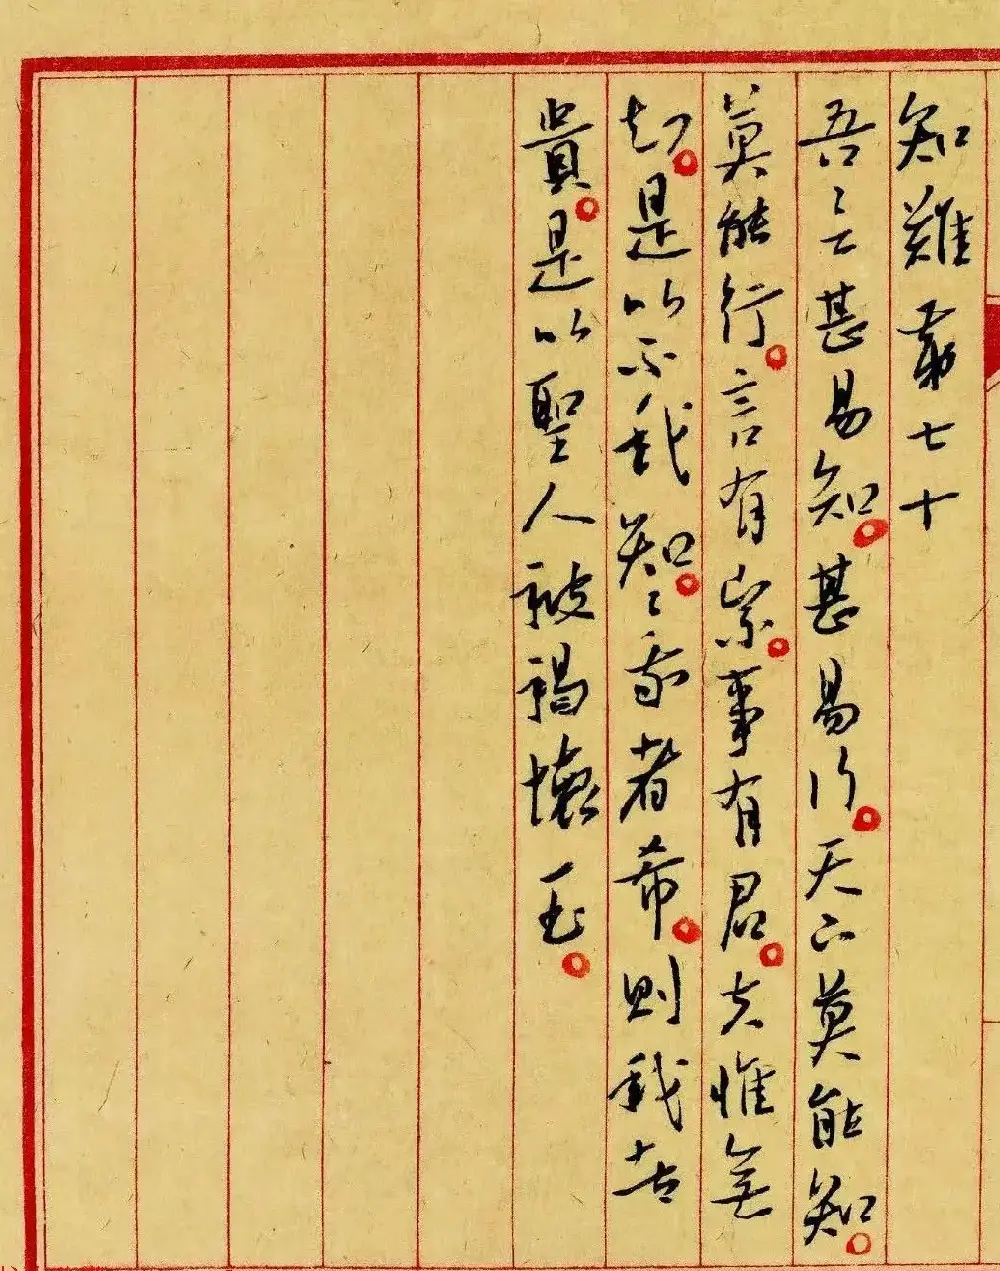 知難第七十
吾言甚易知。甚易行。天下莫能知。
莫能行。言有宗。事有君。夫惟無
知。是以不我知。〻我者希。則我者
貴。是以聖人被褐懷玉。